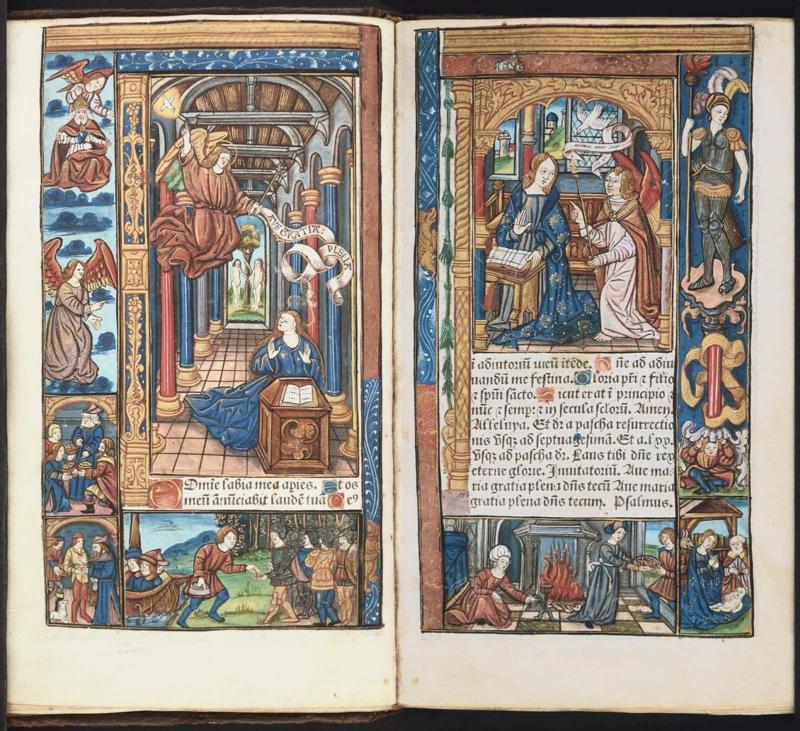 AVE GRATIA:
PLENA
Dmīe labia mea apies. Et os
meū anūciabit laudē tuā De9
ī adiutoriū meū ītēde. Dñe ad adiu
uandū me festina. Gloria pr̄i ⁊ filio
⁊ spūi sācto. Sicut erat ī principio ⁊
nūc ⁊ semp: ⁊ in secula sclorū. Amen.
Alleluya. Et dr a pascha resurrectio
nis vsq; ad septuagesimā. Et a.lxx.
vsq; ad pascha dr. Laus tibi dñe rex
eterne glorie. Inuitatoriū. Aue ma
ria gratia plena dñs tecū Aue maria
gratia plena dñs tecum. Psalmus.